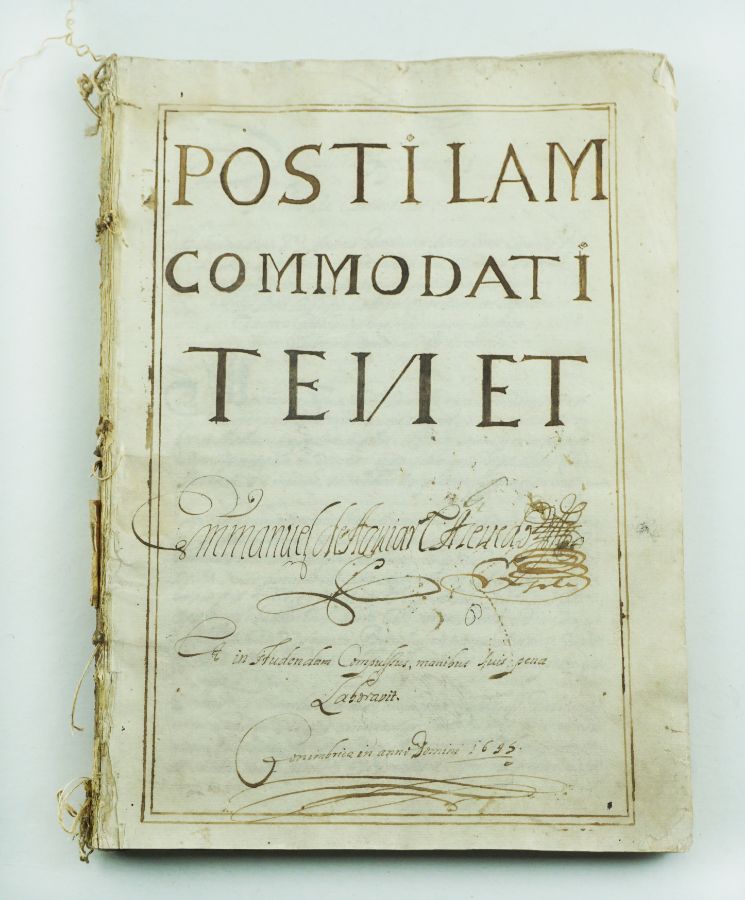 POSTILAM
COMMODATI
TENET
Emmanuel de Aguiar
Et in studendam Compulsus, manibus suis pena
Laboravit.
Conimbricæ in anno Domini 1695.